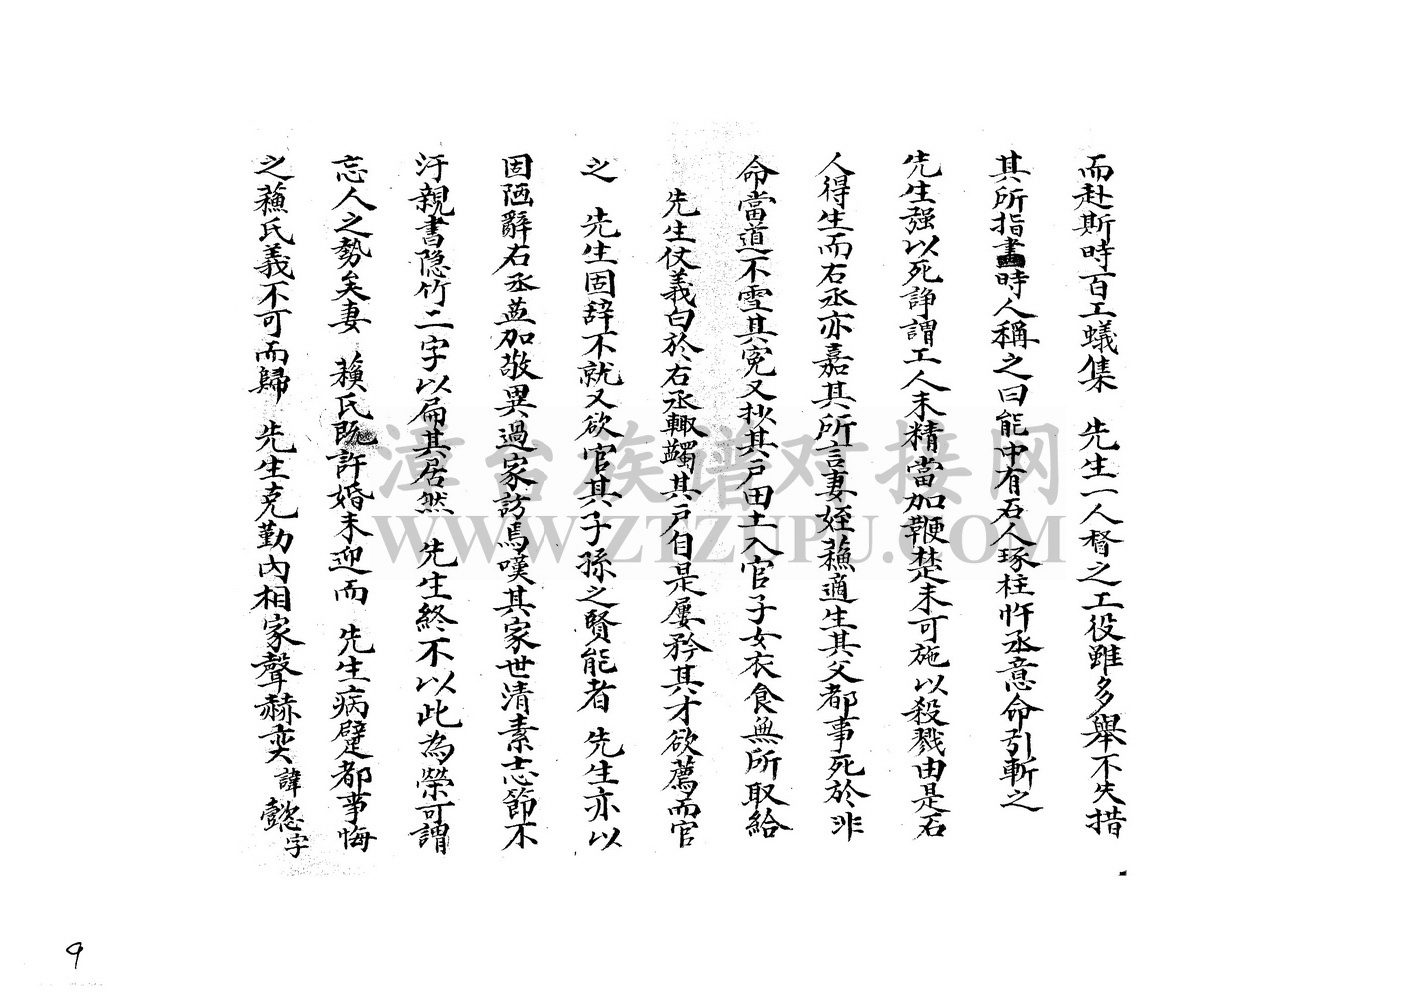 而赴斯時百工蟻集　先生一人督之工役雖多舉不失措
其所指畫時人稱之曰能中有石人琢柱忤丞意命引斬之
先生强以死諍謂工人未精當加鞭楚未可施以殺戮由是石
人得生而右丞亦嘉其所言妻姪蘓適生其父都事死於非
命當道不雪其寃又抄其戸田土入官子女衣食無所取給
先生仗義白於右丞輙蠲其戸自是屡矜其才欲薦而官
之　先生固辞不就又欲官其子孫之賢能者　先生亦以
固陋辭右丞益加敬異過家訪焉嘆其家世清素志節不
汙親書隐竹二字以扁其居然　先生終不以此為榮可謂
忘人之勢矣妻　蘓氏既許婚未迎而　先生病躄都事悔
之蘓氏義不可而歸　先生克勤内相家聲赫奕諱懿字
漳台族谱对接网
WWW.ZTZUPU.COM
9